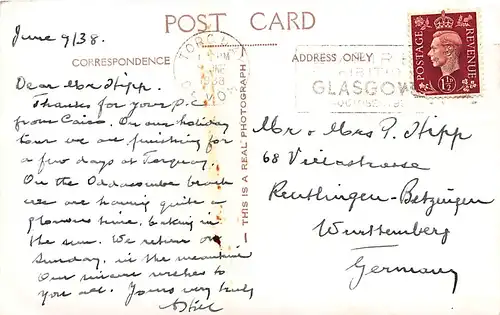 POST CARD
June 9/38.
CORRESPONDENCE
Dear Mr Hipp.
Thanks for your P.C.
from Cairo. On our holiday
tour we are finishing for
a few days at Torquay.
On the Oddacombe beach
we are having quite a
glamorous time, baking in
the sun. We return on
Sunday, in the meantime
Our sincere wishes to
you all. Yours very truly
THIS IS A REAL PHOTOGRAPH
TORQUAY
DEVON
ADDRESS ONLY
GLASGOW
POSTAGE
REVENUE
1½D
Mr & Mrs P. Hipp
68
Reutlingen-Betzingen
Wurttemberg
Germany